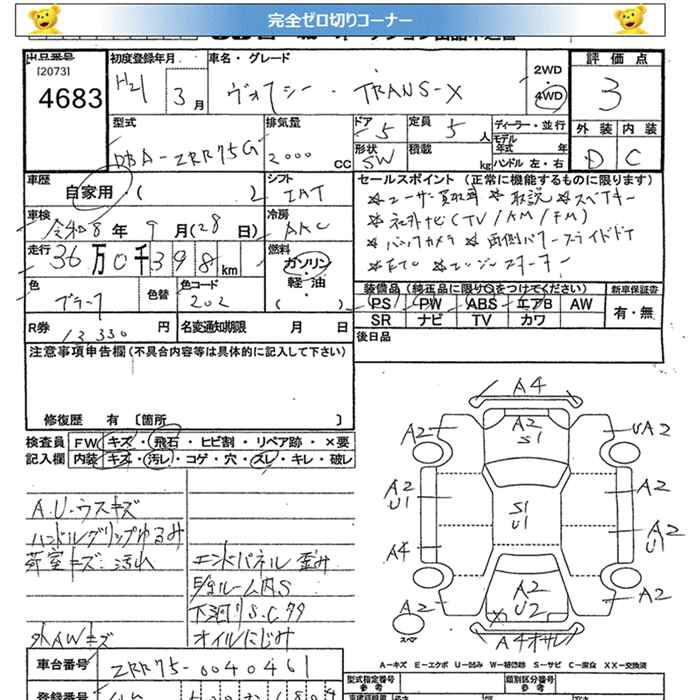 完全ゼロ切りコーナー
出品番号
[2073]
4683
初度登録年月
H21 3月
車名・グレード
ヴォクシー・TRANS-X
2WD
4WD
評価点
3
外装 内装
D C
型式
DBA-ZRR75G
排気量
2000 CC
ドア 5
形状 SW
定員 5 人
積載 kg
ディーラー・並行
モデル年式 年
ハンドル 左・右
車歴
自家用・( )
シフト
IAT
車検
令和8年 9月(28日)
冷房
AAC
走行
36万0千398km
燃料
ガソリン・
軽油
( )
色
ブラック
色替
色コード
202
R券 13,330円
名変通知期限 月 日
セールスポイント(正常に機能するものに限ります)
*ユーザー買取車 *取説 *スペアキー
*社外ナビ(TV/AM/FM)
*バックカメラ *両側パワースライドドア
*ETC *エンジンスターター
装備品(純正品に限り○をつけてください)
PS PW ABS エアB AW
SR ナビ TV カワ
新車保証書
有・無
後日品
注意事項申告欄(不具合内容等は具体的に記入して下さい)
修復歴 有 〔箇所 〕
検査員記入欄
FW キズ・飛石・ヒビ割・リペア跡・×要
内装 キズ・汚レ・コゲ・穴・スレ・キレ・破レ
A.U・ウスキズ
ハンドルグリップゆるみ
荷室キズ・汚れ
外AWキズ
エンドパネル歪み
E/gルーム内S
下廻りS.C多々
オイルにじみ
A4
A2
S1
A2
UA2
A2
U1
A2
S1
U1
A2
U1
A4
A2
U2
A2
A2
スペア
A4オサレ
A-キズ E-エクボ U-凹み W-補修跡 S-サビ C-腐食 XX-交換済
車台番号
ZRR75-0040461
型式指定番号
参考
類別区分番号
参考
登録番号